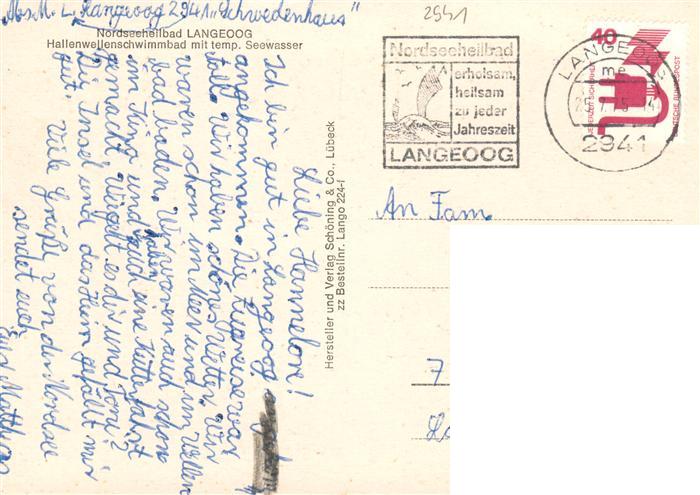 Abs. M. L. Langeoog 2941 "Schwedenhaus"
Nordseeheilbad LANGEOOG
Hallenwellenschwimmbad mit temp. Seewasser
2941
Nordseeheilbad
erholsam,
heilsam
zu jeder
Jahreszeit
LANGEOOG
LANGEOOG
me
2941
40
JEDERZEIT SICHERHEIT
DEUTSCHE BUNDESPOST
An Fam.
7
Hersteller und Verlag Schöning & Co., Lübeck
zz Bestellnr. Lango 224-f
Liebe Hannelore!
Ich bin gut in Langeoog
angekommen. Die war
toll. Wir haben schönes Wetter. Wir
waren schon im Meer und im Wellen
bad baden. Wir waren auch schon
im Kino und haben auch eine Kutterfahrt
gemacht. Wie geht es dir und
Die Insel und das Heim gefällt mir
gut.
Viele Grüße von der Nordsee
sendet euch
Matthias